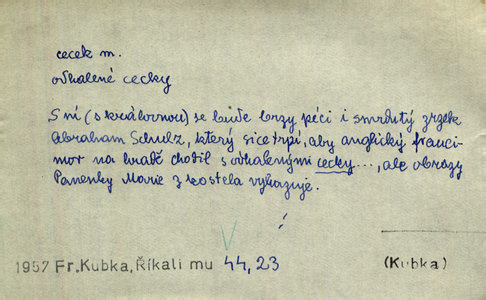 cecek m.
odhalené cecky
S ní (s královnou) se bude brzy péci i smrdutý zrzek
Abraham Schulz, který sice trpí, aby anglický frauci-
mor na hradě chodil s odhalenými cecky..., ale obrazy
Panenky Marie z kostela vyhazuje.
1957 Fr. Kubka, Říkali mu 44, 23 (Kubka)